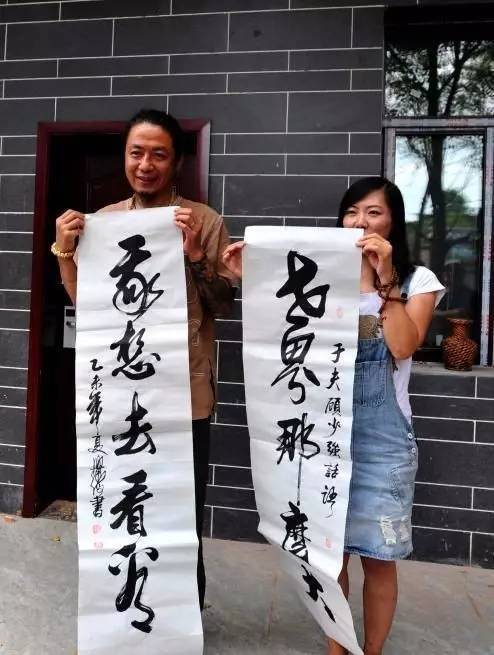 于夫顾少强話語
世界那麼大
我想去看看
乙未年夏
書